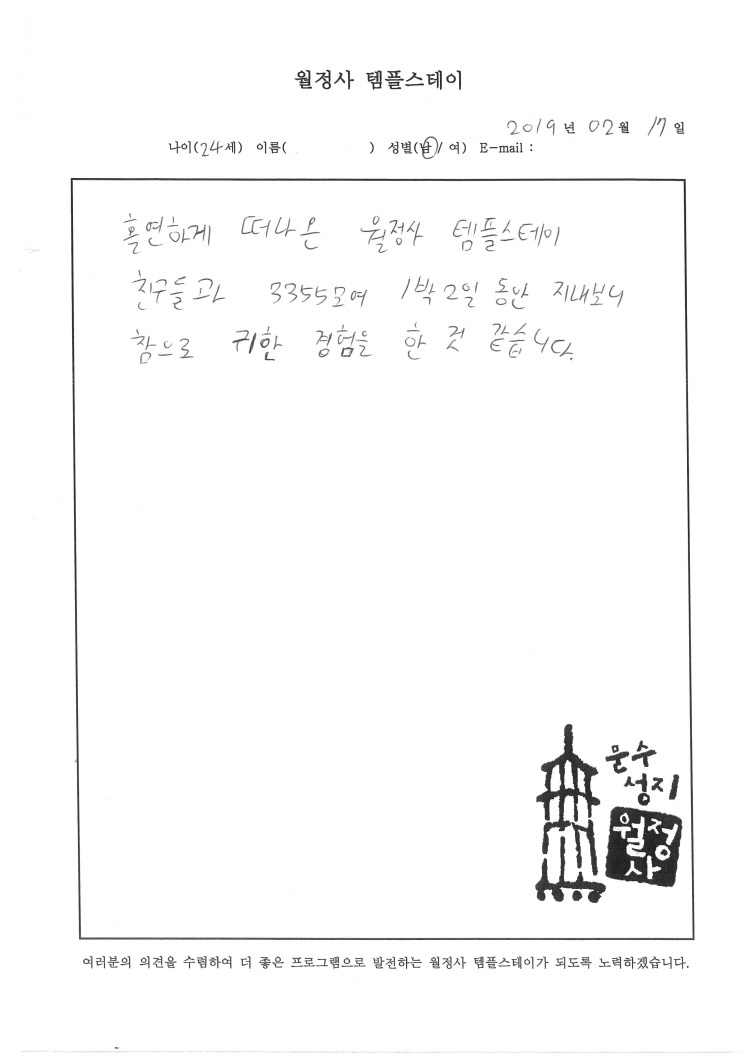 월정사 템플스테이
2019 년 02 월 17 일
나이(24세) 이름( ) 성별(남/ 여) E-mail :
홀연하게 떠나온 월정사 템플스테이
친구들과 3355모여 1박 2일 동안 지내보니
참으로 귀한 경험을 한 것 같습니다.
문수
성지
월정
사
여러분의 의견을 수렴하여 더 좋은 프로그램으로 발전하는 월정사 템플스테이가 되도록 노력하겠습니다.